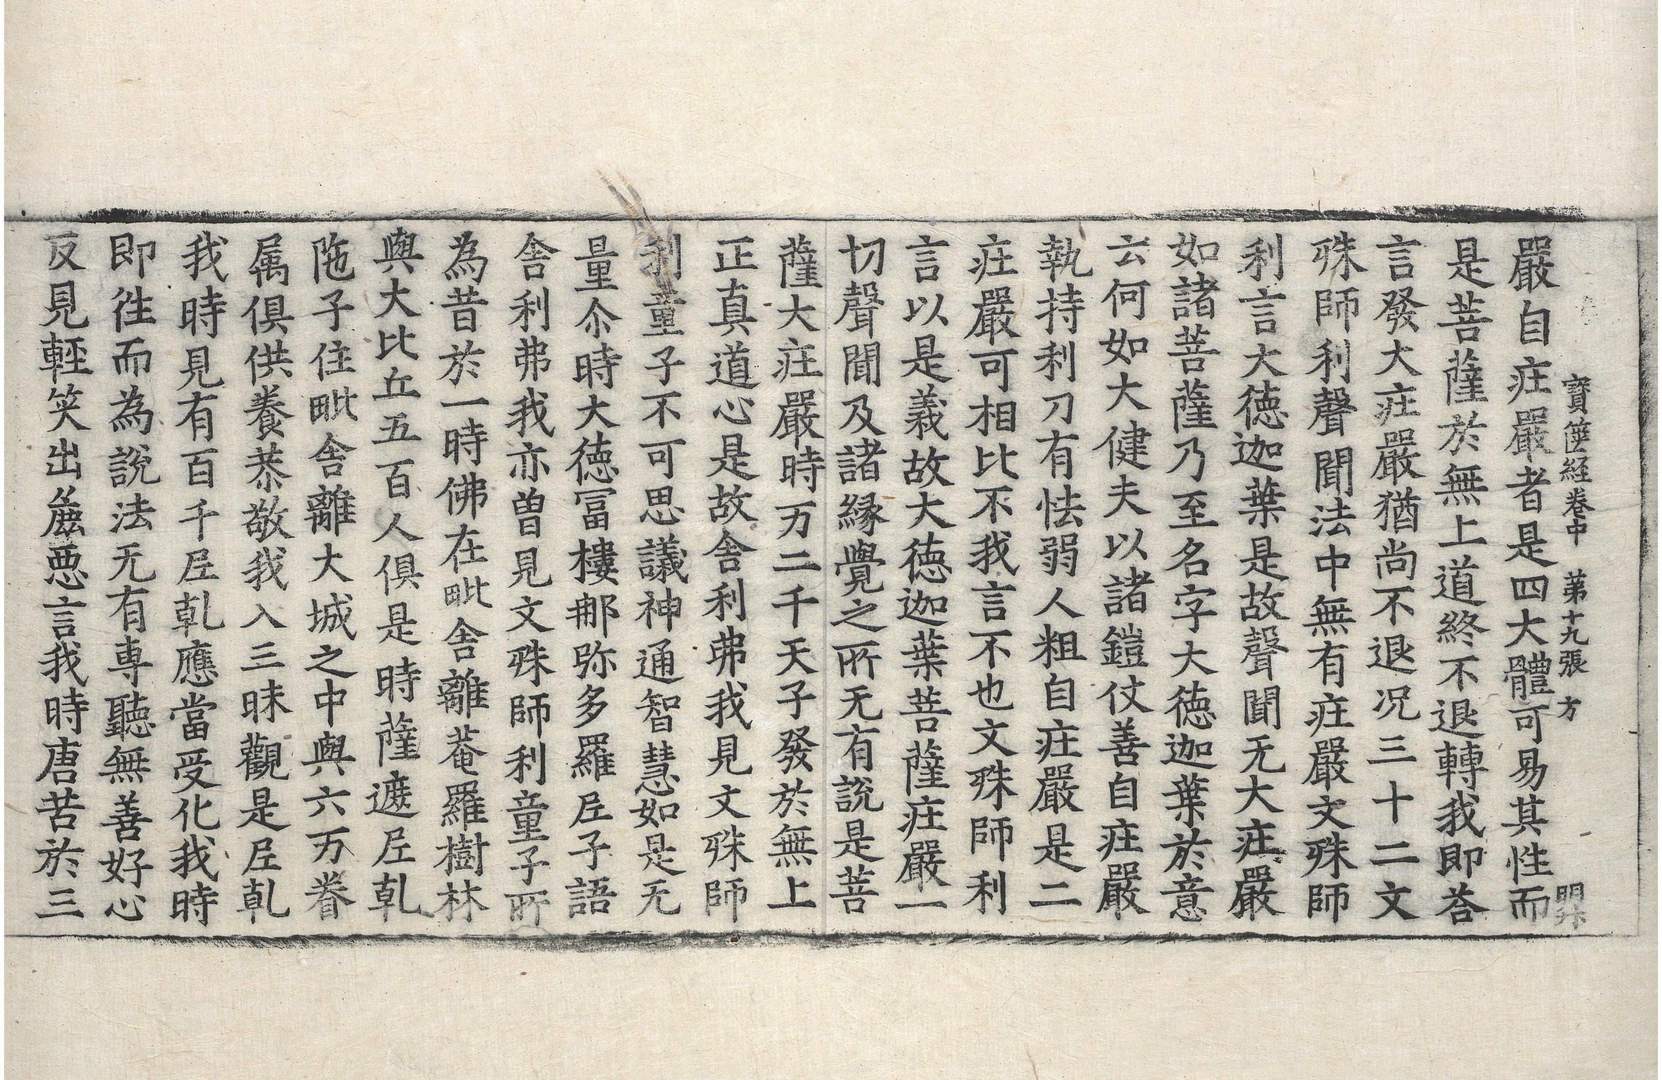 寶篋經卷中 第十九張 方
嚴自庄嚴者是四大體可易其性而
是菩薩於無上道終不退轉我即荅
言發大庄嚴猶尚不退况三十二文
殊師利聲聞法中無有庄嚴文殊師
利言大德迦葉是故聲聞无大庄嚴
如諸菩薩乃至名字大德迦葉於意
云何如大健夫以諸鎧仗善自庄嚴
執持利刀有怯弱人粗自庄嚴是二
庄嚴可相比不我言不也文殊師利
言以是義故大德迦葉菩薩庄嚴一
切聲聞及諸緣覺之所无有說是菩
薩大庄嚴時万二千天子發於無上
正真道心是故舍利弗我見文殊師
利童子不可思議神通智慧如是无
量尒時大德冨樓那弥多羅𡰱子語
舍利弗我亦曽見文殊師利童子所
為昔於一時佛在毗舍離菴羅樹林
與大比丘五百人俱是時薩遮𡰱乹
陁子住毗舍離大城之中與六万眷
属俱供養恭敬我入三昧觀是𡰱乹
我時見有百千𡰱乹應當受化我時
即往而為說法无有專聽無善好心
反見輕笑出麁惡言我時唐苦於三